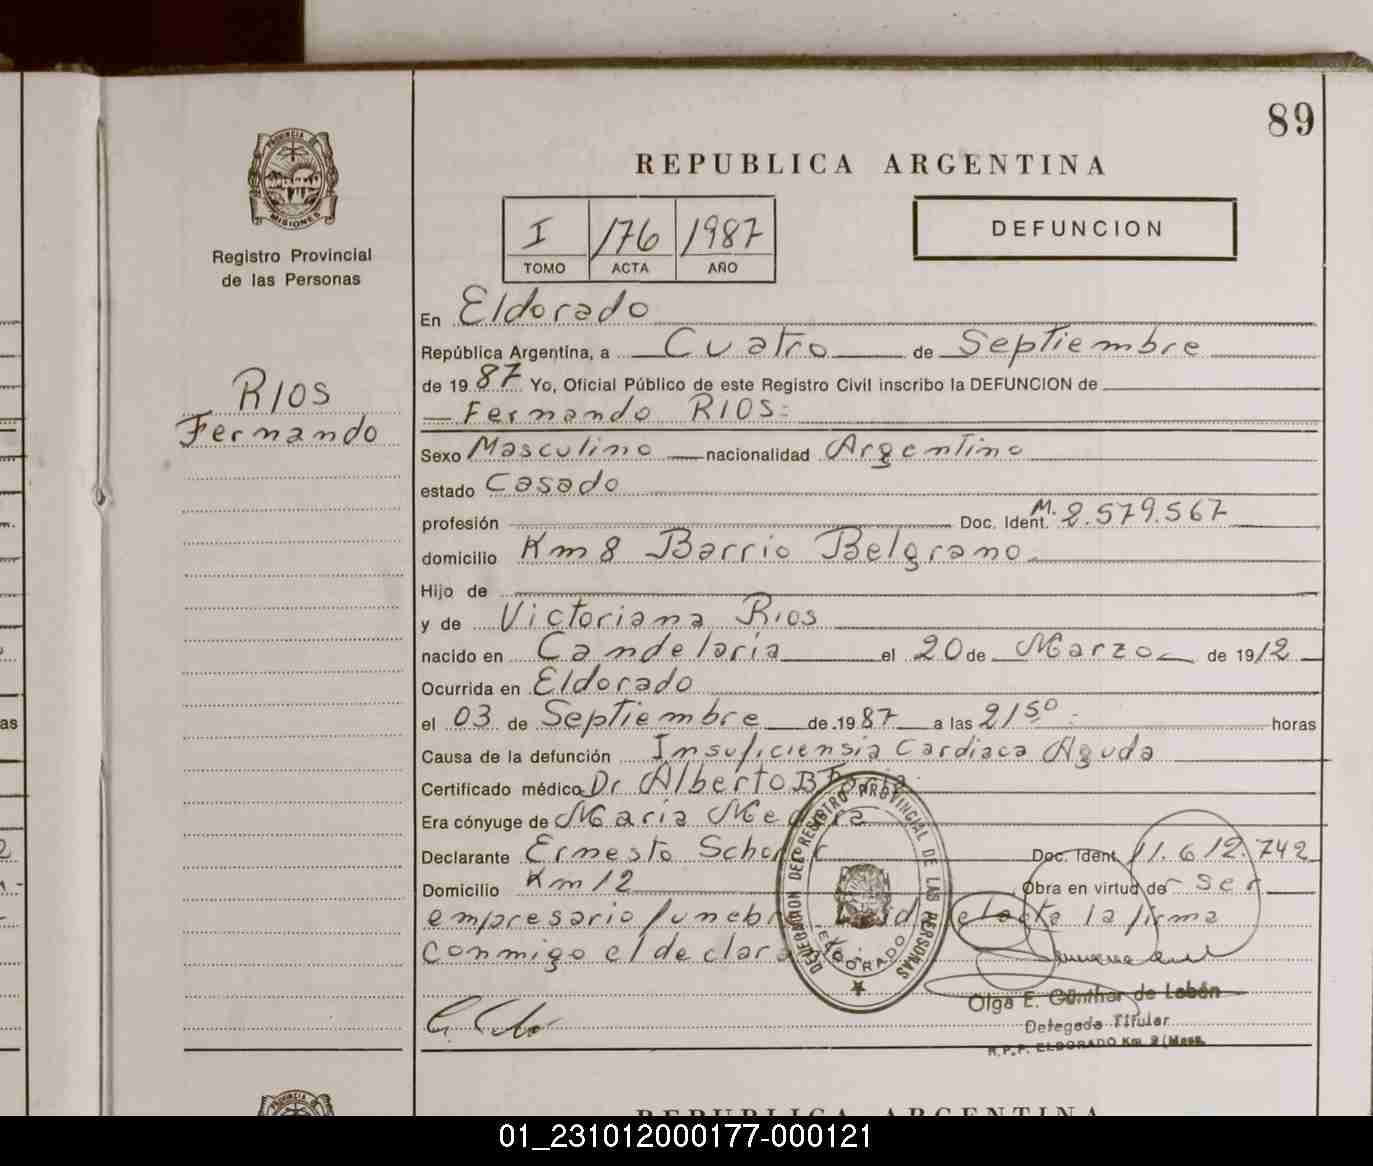 89
REPUBLICA ARGENTINA
PROVINCIA DE
MISIONES
Registro Provincial
de las Personas
I 176 1987
TOMO ACTA AÑO
DEFUNCION
RIOS
Fernando
En Eldorado
República Argentina, a Cuatro de Septiembre
de 1987 Yo, Oficial Público de este Registro Civil inscribo la DEFUNCION de
Fernando RIOS:
Sexo Masculino nacionalidad Argentino
estado Casado
profesión Doc. Ident. M. 2.579.567
domicilio Km 8 Barrio Belgrano
Hijo de
y de Victoriana Rios
nacido en Candelaria el 20 de Marzo de 1912
Ocurrida en Eldorado
el 03 de Septiembre de 1987 a las 21 50 horas
Causa de la defunción Insuficiensia Cardiaca Aguda
Certificado médico Dr Alberto B
Era cónyuge de Maria
Declarante Ernesto Doc. Ident. 11.612.742
Domicilio Km 12 Obra en virtud de ser
empresario la firma
conmigo el
DELEGACION DEL REGISTRO PROVINCIAL DE LAS PERSONAS
ELDORADO
Olga E. Günther de Lobón
Delegada Titular
R.P.P. ELDORADO Km 9 (Mnes.
REPUBLICA ARGENTINA
01_231012000177-000121